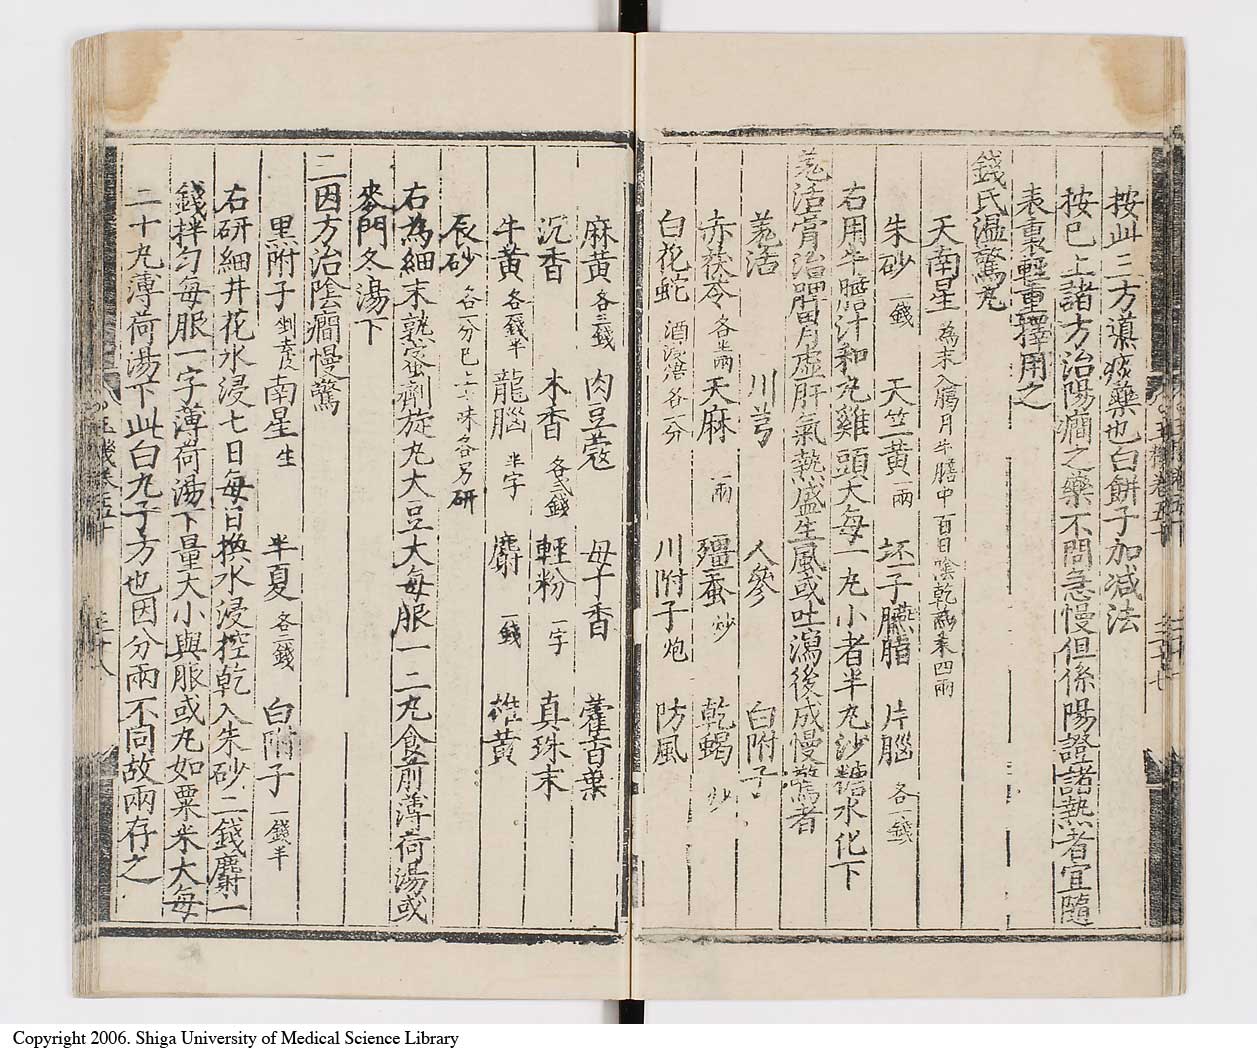 按此三方導痰藥也白餅子加減法
按巳上諸方治陽癇之藥不問急慢但係陽證諸熱者宜隨
表裏輕重擇用之
錢氏溫驚丸
天南星 為末入臈月牛膽中一百日陰乾 取末四兩
朱砂 一錢 天竺黃 一兩 坯子臙脂 片腦 各一錢
右用牛膽汁和丸雞頭大每一丸小者半丸沙糖水化下
羗活膏治脾胃虛肝氣熱盛生風或吐瀉後成慢驚者
羗活 川芎 人參 白附子
赤茯苓 各半兩 天麻 一兩 殭蚕 炒 乾蝎 炒
白花蛇 酒浸焙各一分 川附子 炮 防風
麻黃 各三錢 肉豆蔻 母丁香 藿百葉
沉香 木香 各二錢 輕粉 一字 真珠末
牛黃 各一錢半 龍腦 半字 麝 一錢 雄黃
辰砂 各一分巳上七味各另研
右為細末熟蜜劑旋丸大豆大每服一二丸食前薄荷湯或
麥門冬湯下
三因方治陰癇慢驚
黑附子 剉去皮 南星 生 半夏 各二錢 白附子 一錢半
右研細井花水浸七日每日換水浸控乾入朱砂二錢麝一
錢拌勻每服一字薄荷湯下量大小與服或丸如粟米大每
二十丸薄荷湯下此白丸子方也因分兩不同故兩存之
Copyright 2006. Shiga University of Medical Science Library